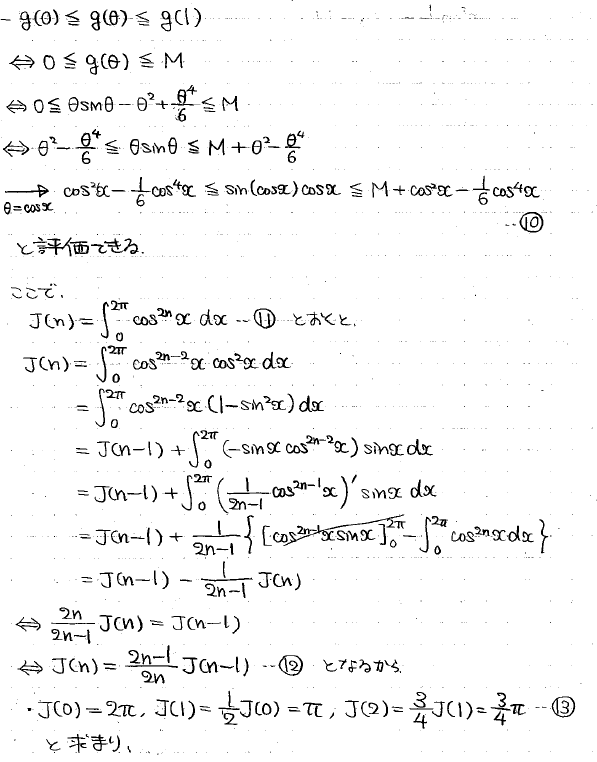 - g(0) ≦ g(θ) ≦ g(1)
⇔ 0 ≦ g(θ) ≦ M
⇔ 0 ≦ θsinθ - θ² + θ⁴/6 ≦ M
⇔ θ² - θ⁴/6 ≦ θsinθ ≦ M + θ² - θ⁴/6
→ θ=cosx cos²x - 1/6 cos⁴x ≦ sin(cosx)cosx ≦ M + cos²x - 1/6 cos⁴x
…⑩
と評価できる.
ここで,
J(n) = ∫₀^{2π} cos^{2n}x dx …⑪ とおくと,
J(n) = ∫₀^{2π} cos^{2n-2}x cos²x dx
= ∫₀^{2π} cos^{2n-2}x (1-sin²x) dx
= J(n-1) + ∫₀^{2π} (-sinx cos^{2n-2}x) sinx dx
= J(n-1) + ∫₀^{2π} (1/(2n-1) cos^{2n-1}x)' sinx dx
= J(n-1) + 1/(2n-1) { [cos^{2n-1}x sinx]₀^{2π} - ∫₀^{2π} cos^{2n}x dx }
= J(n-1) - 1/(2n-1) J(n)
⇔ 2n/(2n-1) J(n) = J(n-1)
⇔ J(n) = (2n-1)/2n J(n-1) …⑫ となるから
・J(0) = 2π, J(1) = 1/2 J(0) = π, J(2) = 3/4 J(1) = 3/4 π …⑬
と求まり、